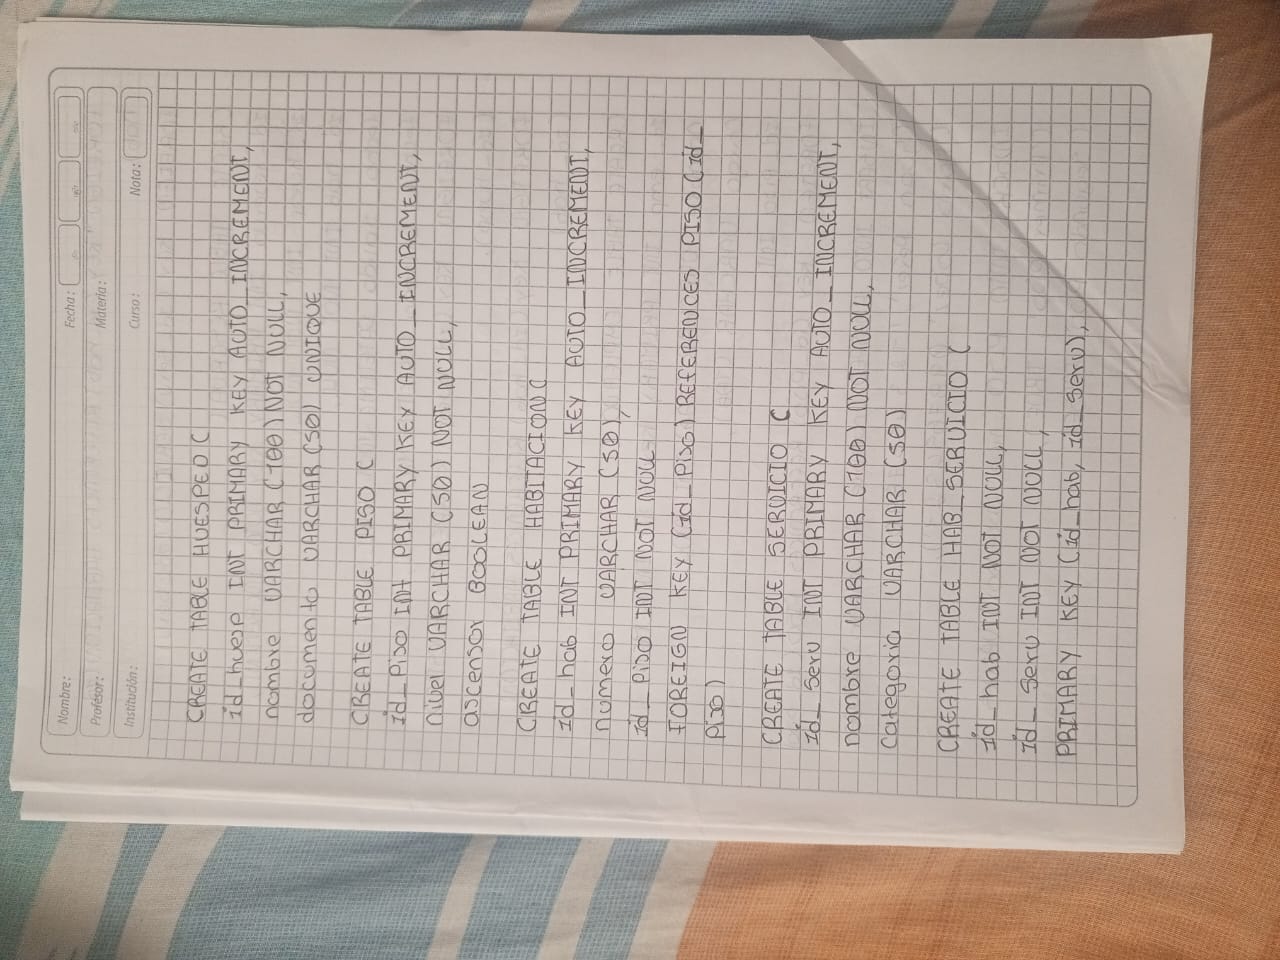 Nombre:
Fecha:
Profesor:
Materia:
Institución:
Curso:
Nota:
CREATE TABLE HUESPED (
id_huesp INT PRIMARY KEY AUTO_INCREMENT,
nombre VARCHAR (100) NOT NULL,
documento VARCHAR (50) UNIQUE
CREATE TABLE PISO (
id_Piso INt PRIMARY KEY AUTO_INCREMENT,
nivel VARCHAR (50) NOT NULL,
ascensor BOOLEAN
CREATE TABLE HABITACION (
id_hab INT PRIMARY KEY AUTO_INCREMENT,
numero VARCHAR (50),
id_Piso INT NOT NULL
FOREIGN KEY (id_Piso) REFERENCES PISO (id_
Piso)
CREATE TABLE SERVICIO (
id_serv INT PRIMARY KEY AUTO_INCREMENT,
nombre VARCHAR (100) NOT NULL,
categoria VARCHAR (50)
CREATE TABLE HAB_SERVICIO (
id_hab INT NOT NULL,
id_serv INT NOT NULL,
PRIMARY KEY (id_hab, id_serv),